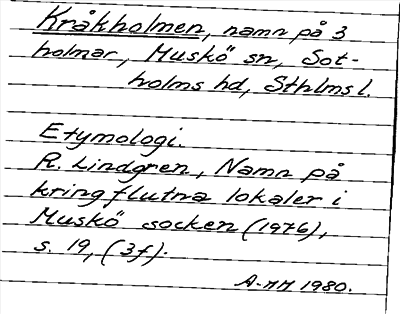 Kråkholmen, namn på 3
holmar, Muskö sn, Sot-
holms hd, Sthlms l.
Etymologi.
R. Lindgren, Namn på
kringflutna lokaler i
Muskö socken (1976),
s. 19, (3f).
A-MM 1980.